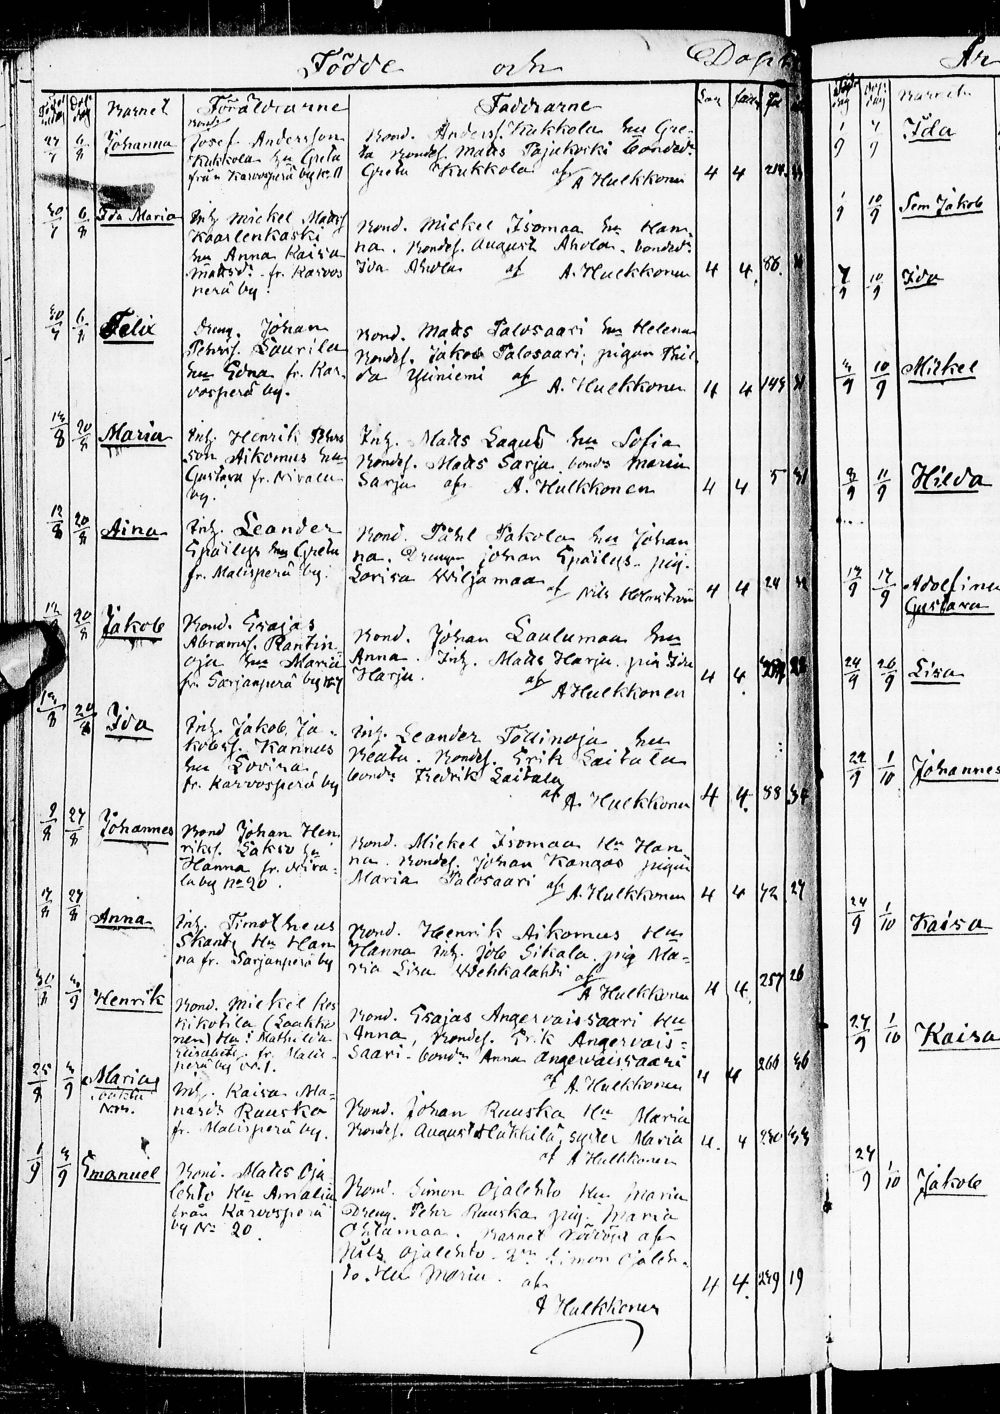 Födde och Döpt
Barnet Föräldrarne Faddrarne
27/7 6/8 Johanna
Josef Andersson
Kukkola Hu Greta
från Karvosperä by
Bond. Anders Kukkola Hu Gre-
ta Bondes. Matts Pajukoski bonded:
Greta Kukkola af A Hulkkonen 4 4
30/7 6/8 Ida Maria
Inh. Mickel Matts
Kaarlenkoski
Hu Anna Kaisa
Mattsd. fr. Karvos
perä by.
Bond. Mickel Isomaa Hu Han-
na. Bondes. August Ahola. bonded:
Ida Ahola af A. Hulkkonen 4 4. 88.
30/7 6/8 Felix
Dreng. Johan
Pehrs. Laurila
Hu Edna fr. Kar-
vosperä by.
Bond. Matts Palosaari Hu Helena
Bondes. Jakob Palosaari, pigan Hil
da Yliniemi af A. Hulkkonen 4 4
13/8 20/8 Maria
Inh. Henrik Pehrs
son Aikomus Hu
Gustava fr. Nivala
by.
Inh. Matts Lagus Hu Sofia
Bondes. Matts Sarja, bonds Maria
Sarja af A. Hulkkonen 4 4 5 31
12/8 20/8 Aina
Inh. Leander
Epäilys Hu Greta
fr. Malisperä by.
Bond. Påhl Pakola Hu Johan
na. Drengn Johan Epäilys. pig.
Lovisa Wiljamaa af Nils Holmström 4 4 24 32
20/8 Jakob
Bond. Esajas
Abrams. Rantin-
oja Hu Maria
fr. Sarjanperä by
Bond. Johan Laulumaa Hu
Anna. Inh. Matts Harju. pig Ida
Harju. af A Hulkkonen 4 4.
20/8 Ida
Inh. Jakob Ja-
kobs. Karinus
Hu Lovisa
fr. Karvosperä by
Inh. Leander Töllinoja Hu
Beata. Bondes. Erik Saitala
bonds Fredrik Saitala
af A. Hulkkonen 4 4. 88 34
9/8 27/8 Johannes
Bond Johan Hen
riks. Lakso Hu
Hanna fr. Niva-
la by No 20.
Bond. Mickel Isomaa Hu Han
na. Bondes. Johan Kangas pigan
Maria Palosaari af A. Hulkkonen 4 4 72 27
17/8 27/8 Anna
Inh. Timotheus
Skants Hu Han
na fr. Sarjanperä by
Bond. Henrik Aikomus Hu
Hanna Inh. Job Sikala. pig Ma-
ria Lisa Wehkalahti af
A Hulkkonen 4 4. 257 26
3/9 Henrik
Bond. Mickel Kos
kikotila (Laukko
nen) Hu: Mathilda
Elisabeth fr. Malis-
perä by No 1.
Bond. Esajas Angervaissaari Hu
Anna, Bondes. Erik Angervais-
saari. bonds Anna Angervaissaari
af A. Hulkkonen 4 4 36
25/8 3/9 Maria
oäkta
Inh. Kaisa Ma-
nasd: Ruuska
fr. Malisperä by.
Bond. Johan Ruuska Hu Maria
Bondes. August Häkkilä, syster Maria
af A Hulkkonen 4. 4 230 33
1/9 3/9 Emanuel
Bond. Matts Oja
lehto Hu Amalia
från Karvosperä
by No 20.
Bond. Simon Ojalehto Hu Maria
Dreng. Pehr Ruuska pig. Maria
Ohtamaa. Barnet nöddöpt af
Nils Ojalehto. Simon Ojaleh-
to Hu Maria. af
A Hulkkonen 4 4. 239 19
År
Barnet
1/9 Ida
1/9 10/9 Sem Jakob
7/9 10/9 Ida
3/9 10/9 Mickel
8/9 11/9 Hilda
17/9 Adolfina
Gustava
24/9 26/9 Lisa
22/9 1/10 Johannes
24/9 1/10 Kaisa
27/9 1/10 Kaisa
27/9 1/10 Jakob